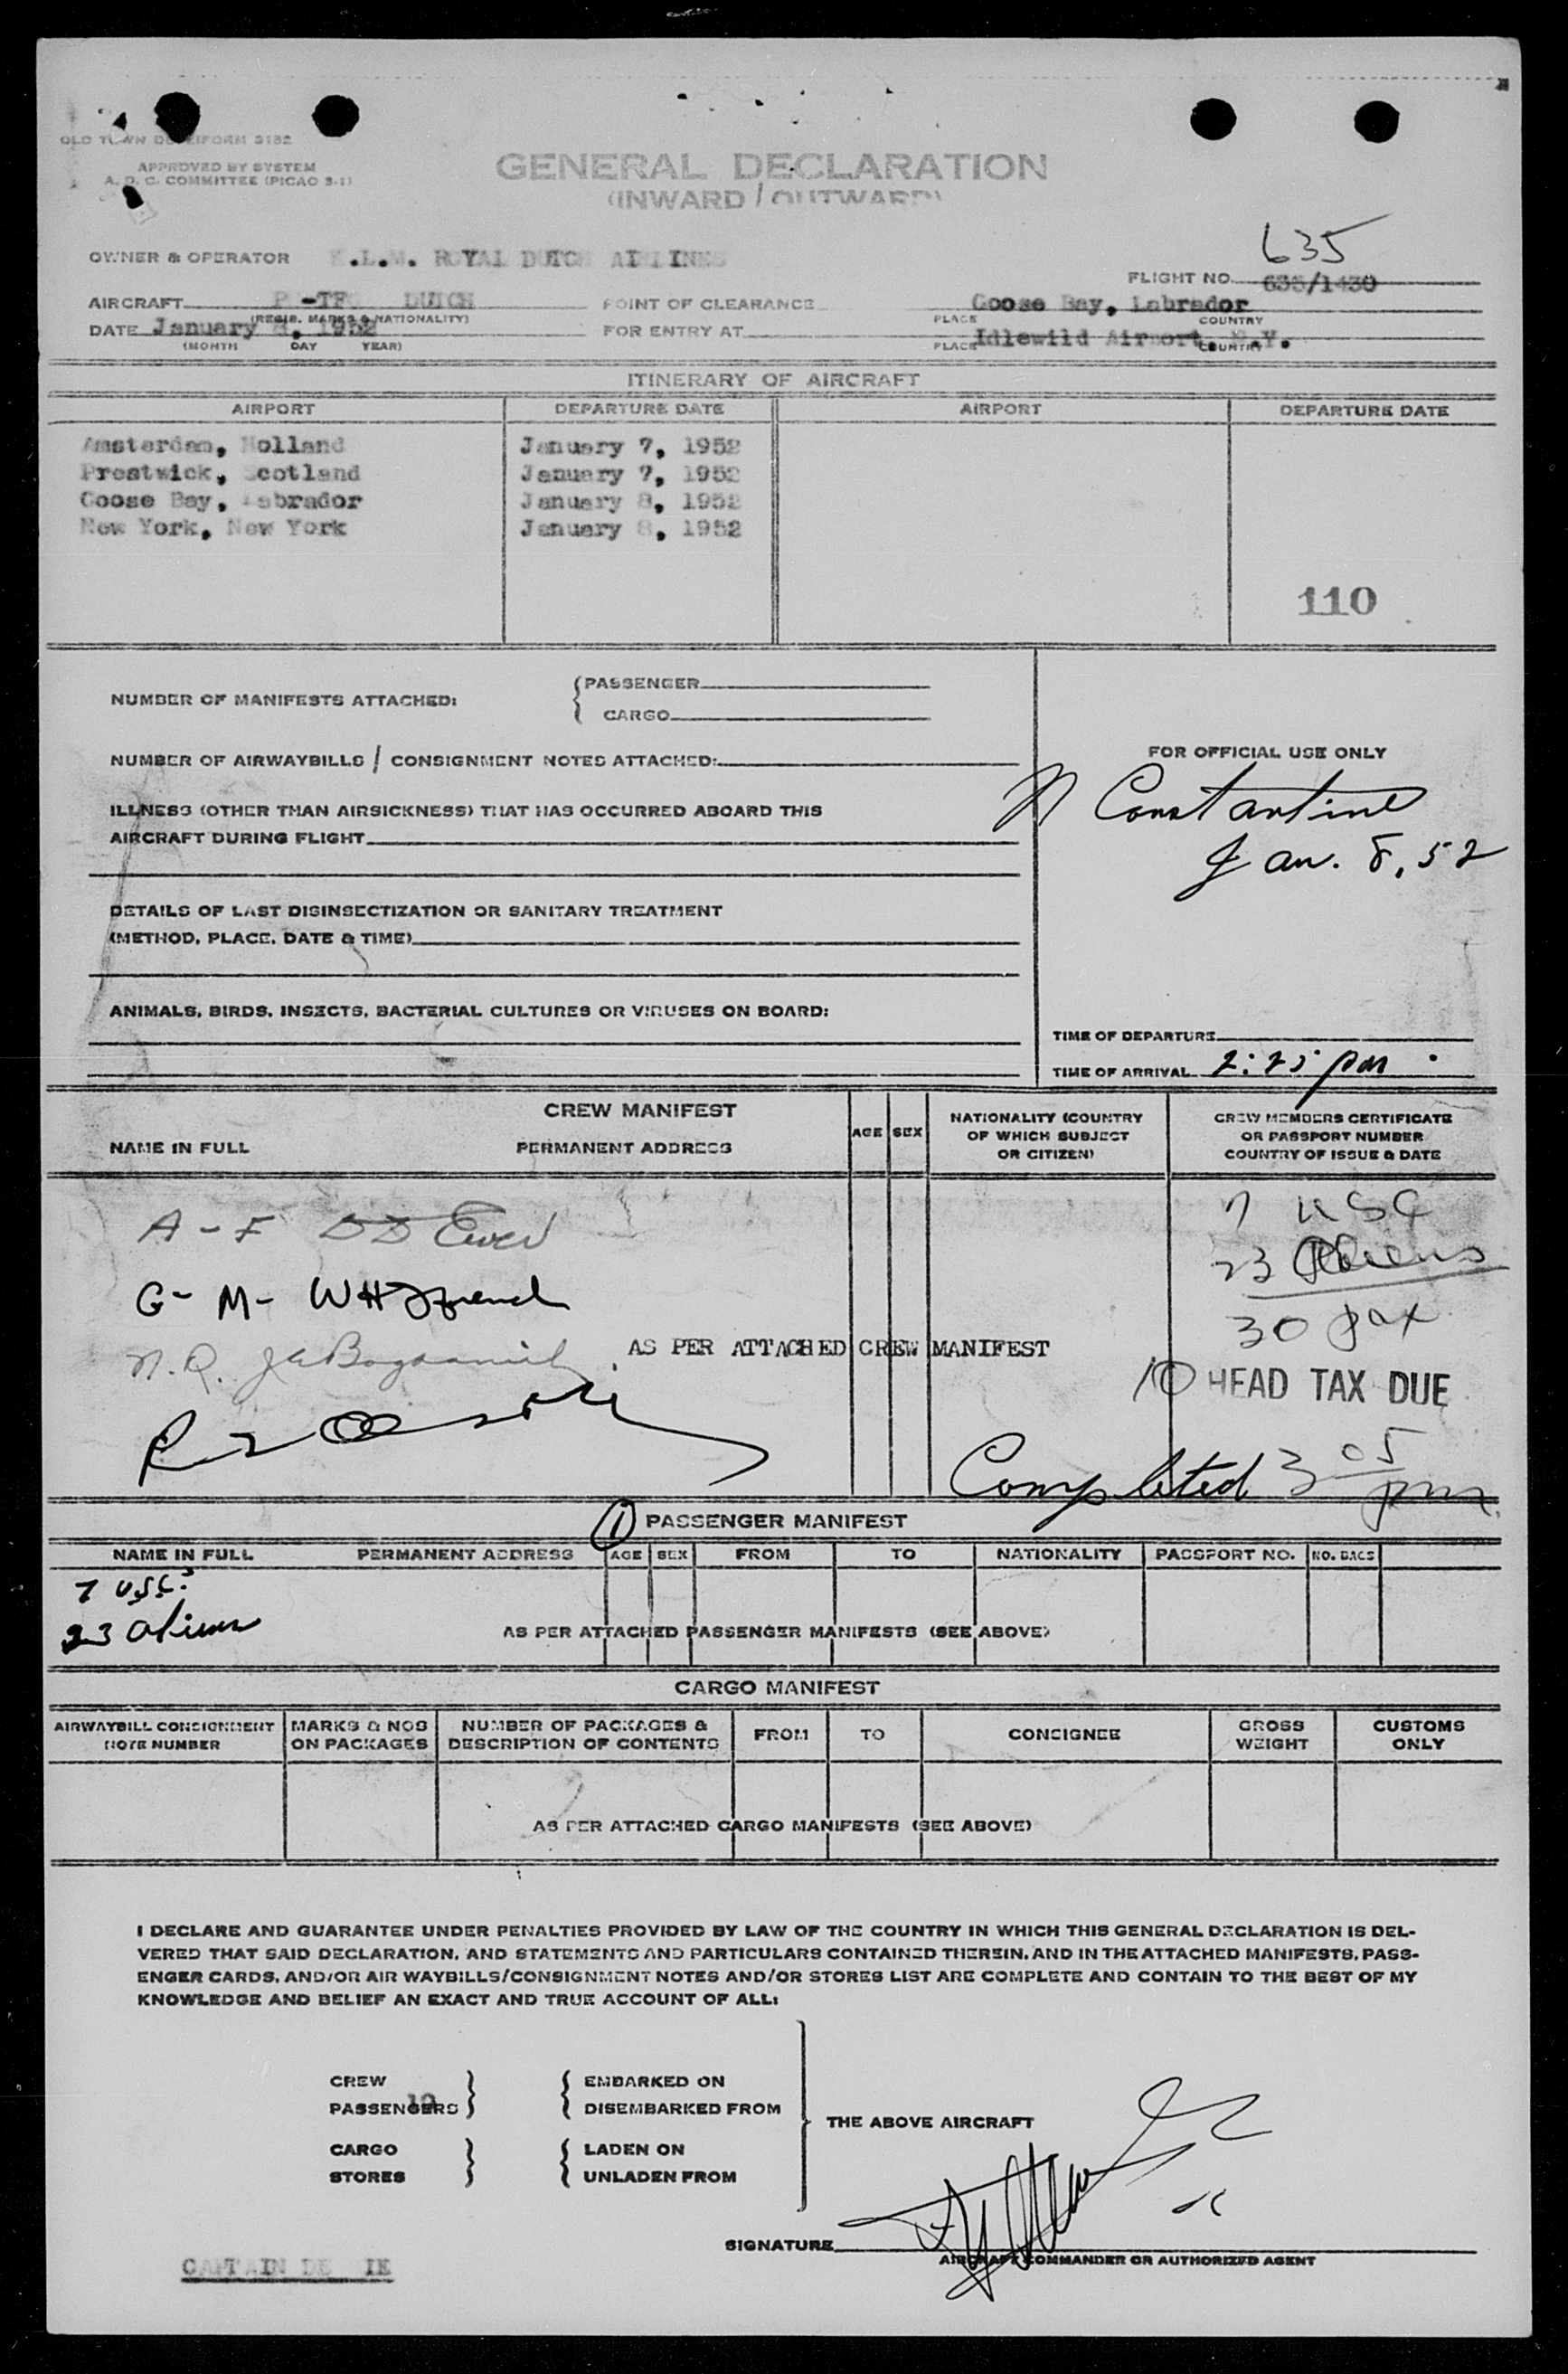 OLD TOWN
APPROVED BY SYSTEM
A. D. C. COMMITTEE (PICAO 3-1)
GENERAL DECLARATION
(INWARD / OUTWARD)
635
OWNER & OPERATOR K.L.M. ROYAL DUTCH AIRLINES
FLIGHT NO. 635/1430
AIRCRAFT DUTCH
(REGIS. MARKS & NATIONALITY)
POINT OF CLEARANCE Goose Bay, Labrador
PLACE COUNTRY
DATE January 8, 1952
(MONTH DAY YEAR)
FOR ENTRY AT Idlewild Airport, N.Y.
PLACE COUNTRY
ITINERARY OF AIRCRAFT
AIRPORT DEPARTURE DATE AIRPORT DEPARTURE DATE
Amsterdam, Holland January 7, 1952
Prestwick, Scotland January 7, 1952
Goose Bay, Labrador January 8, 1952
New York, New York January 8, 1952
110
NUMBER OF MANIFESTS ATTACHED: PASSENGER
CARGO
NUMBER OF AIRWAYBILLS / CONSIGNMENT NOTES ATTACHED:
ILLNESS (OTHER THAN AIRSICKNESS) THAT HAS OCCURRED ABOARD THIS
AIRCRAFT DURING FLIGHT
DETAILS OF LAST DISINSECTIZATION OR SANITARY TREATMENT
(METHOD, PLACE, DATE & TIME)
ANIMALS, BIRDS, INSECTS, BACTERIAL CULTURES OR VIRUSES ON BOARD:
FOR OFFICIAL USE ONLY
N Constantine
Jan. 8, 52
TIME OF DEPARTURE
TIME OF ARRIVAL 2:25 pm
CREW MANIFEST
NAME IN FULL PERMANENT ADDRESS
AGE SEX
NATIONALITY (COUNTRY
OF WHICH SUBJECT
OR CITIZEN)
CREW MEMBERS CERTIFICATE
OR PASSPORT NUMBER
COUNTRY OF ISSUE & DATE
A - F
G - M -
N.R.
7 USC
23 Aliens
30 pax
AS PER ATTACHED CREW MANIFEST
10 HEAD TAX DUE
Completed 3 05 pm
1 PASSENGER MANIFEST
NAME IN FULL PERMANENT ADDRESS AGE SEX FROM TO NATIONALITY PASSPORT NO. NO. BAGS
7 USC.
23 aliens
AS PER ATTACHED PASSENGER MANIFESTS (SEE ABOVE)
CARGO MANIFEST
AIRWAYBILL CONSIGNMENT
NOTE NUMBER
MARKS & NOS
ON PACKAGES
NUMBER OF PACKAGES &
DESCRIPTION OF CONTENTS
FROM
TO
CONSIGNEE
GROSS
WEIGHT
CUSTOMS
ONLY
AS PER ATTACHED CARGO MANIFESTS (SEE ABOVE)
I DECLARE AND GUARANTEE UNDER PENALTIES PROVIDED BY LAW OF THE COUNTRY IN WHICH THIS GENERAL DECLARATION IS DEL-
VERED THAT SAID DECLARATION, AND STATEMENTS AND PARTICULARS CONTAINED THEREIN, AND IN THE ATTACHED MANIFESTS, PASS-
ENGER CARDS, AND/OR AIR WAYBILLS/CONSIGNMENT NOTES AND/OR STORES LIST ARE COMPLETE AND CONTAIN TO THE BEST OF MY
KNOWLEDGE AND BELIEF AN EXACT AND TRUE ACCOUNT OF ALL:
CREW EMBARKED ON
PASSENGERS DISEMBARKED FROM
THE ABOVE AIRCRAFT
CARGO LADEN ON
STORES UNLADEN FROM
SIGNATURE
AIRCRAFT COMMANDER OR AUTHORIZED AGENT
CAPTAIN